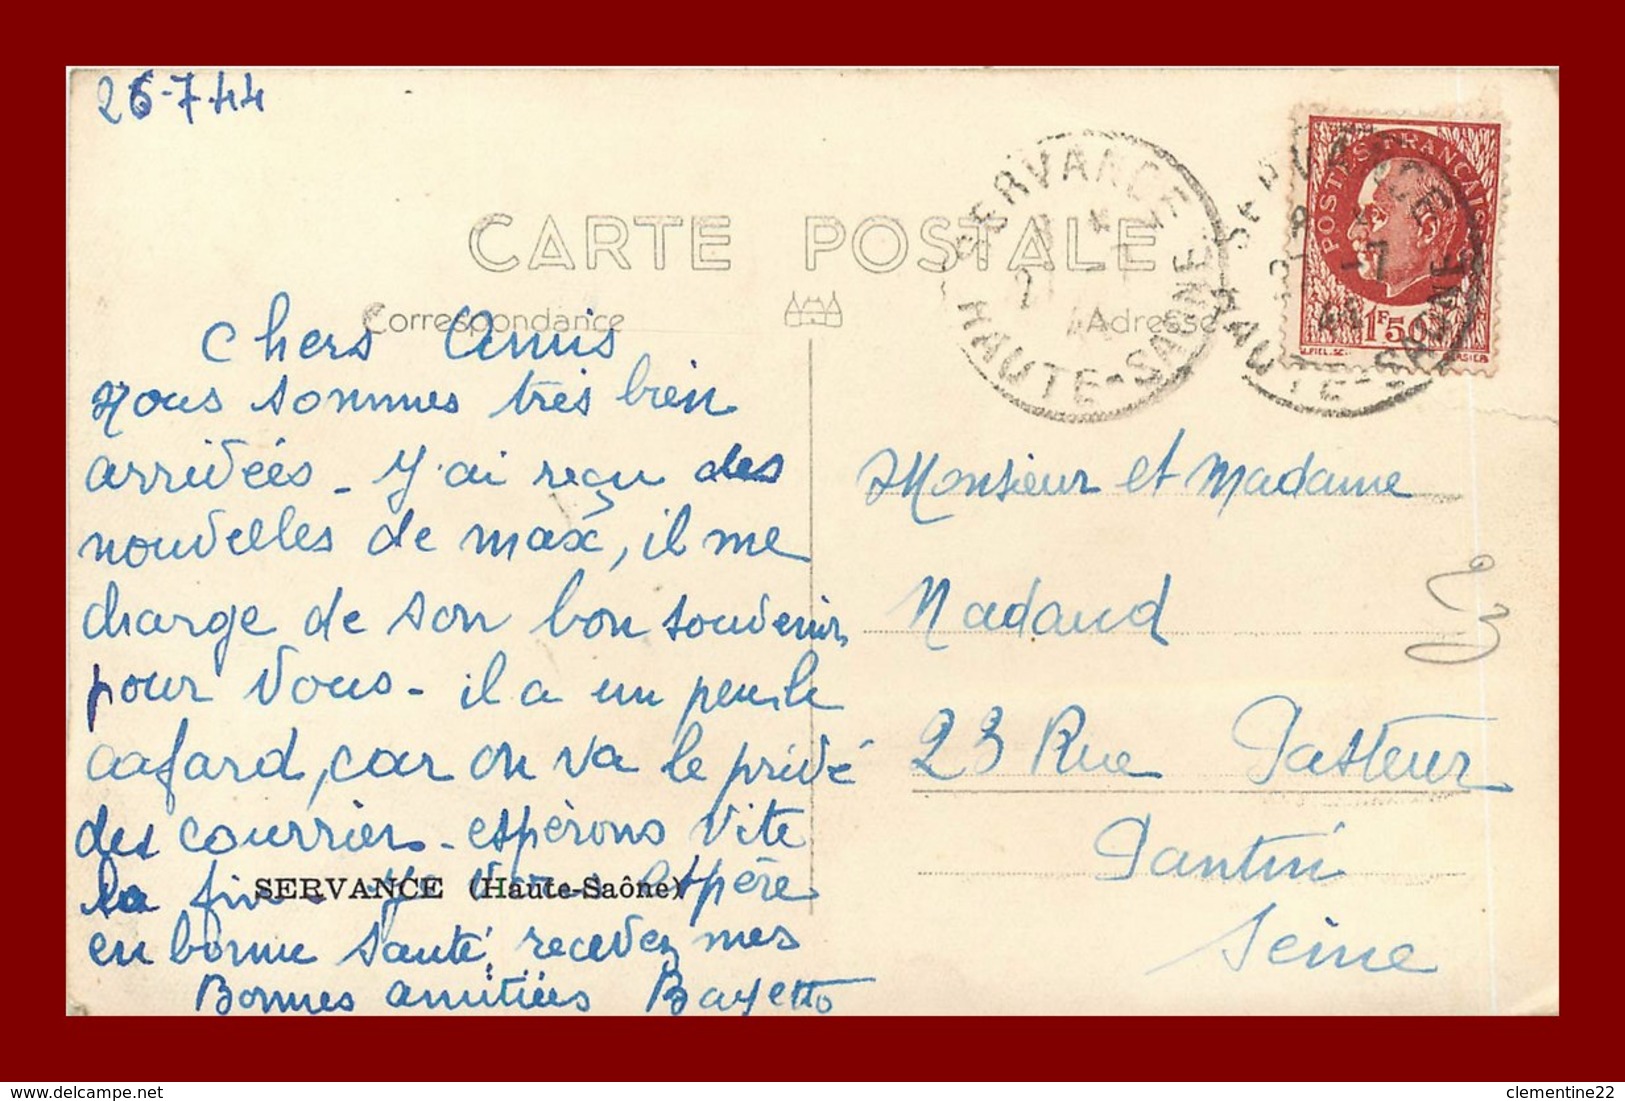 26-7-44
CARTE POSTALE
Correspondance
Adresse
SERVANCE
HAUTE-SAONE
SERVANCE
HAUTE-SAONE
POSTES FRANÇAISES
1F50
Chers Amis
Nous sommes très bien
arrivées - J'ai reçu des
nouvelles de max, il me
charge de son bon souvenir
pour vous - il a un peu le
cafard, car on va le privé
des courrier - espérons vite
la fin - Je vous espère
SERVANCE (Haute-Saône)
en bonne santé, recevez mes
Bonnes amitiées Bayetto
Monsieur et Madame
Nadaud
23 Rue Pasteur
Pantin
Seine
clementine22